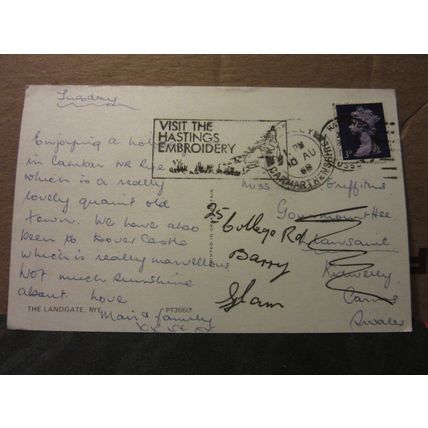 Tuesday
Enjoying a
in Camber nr Rye
which is a really
lovely quaint old
town. We have also
been to Dover Castle
which is really marvellous
Not much sunshine
about. Love
& family
xx xx xx
THE LANDGATE, RYE
PT3660
PRINTED IN
VISIT THE
HASTINGS
EMBROIDERY
PM
10 AU
68
CARMARTHENSHIRE
Miss Griffiths
25 College Rd
Barry
Glam
Kidwelly
Carms
S Wales